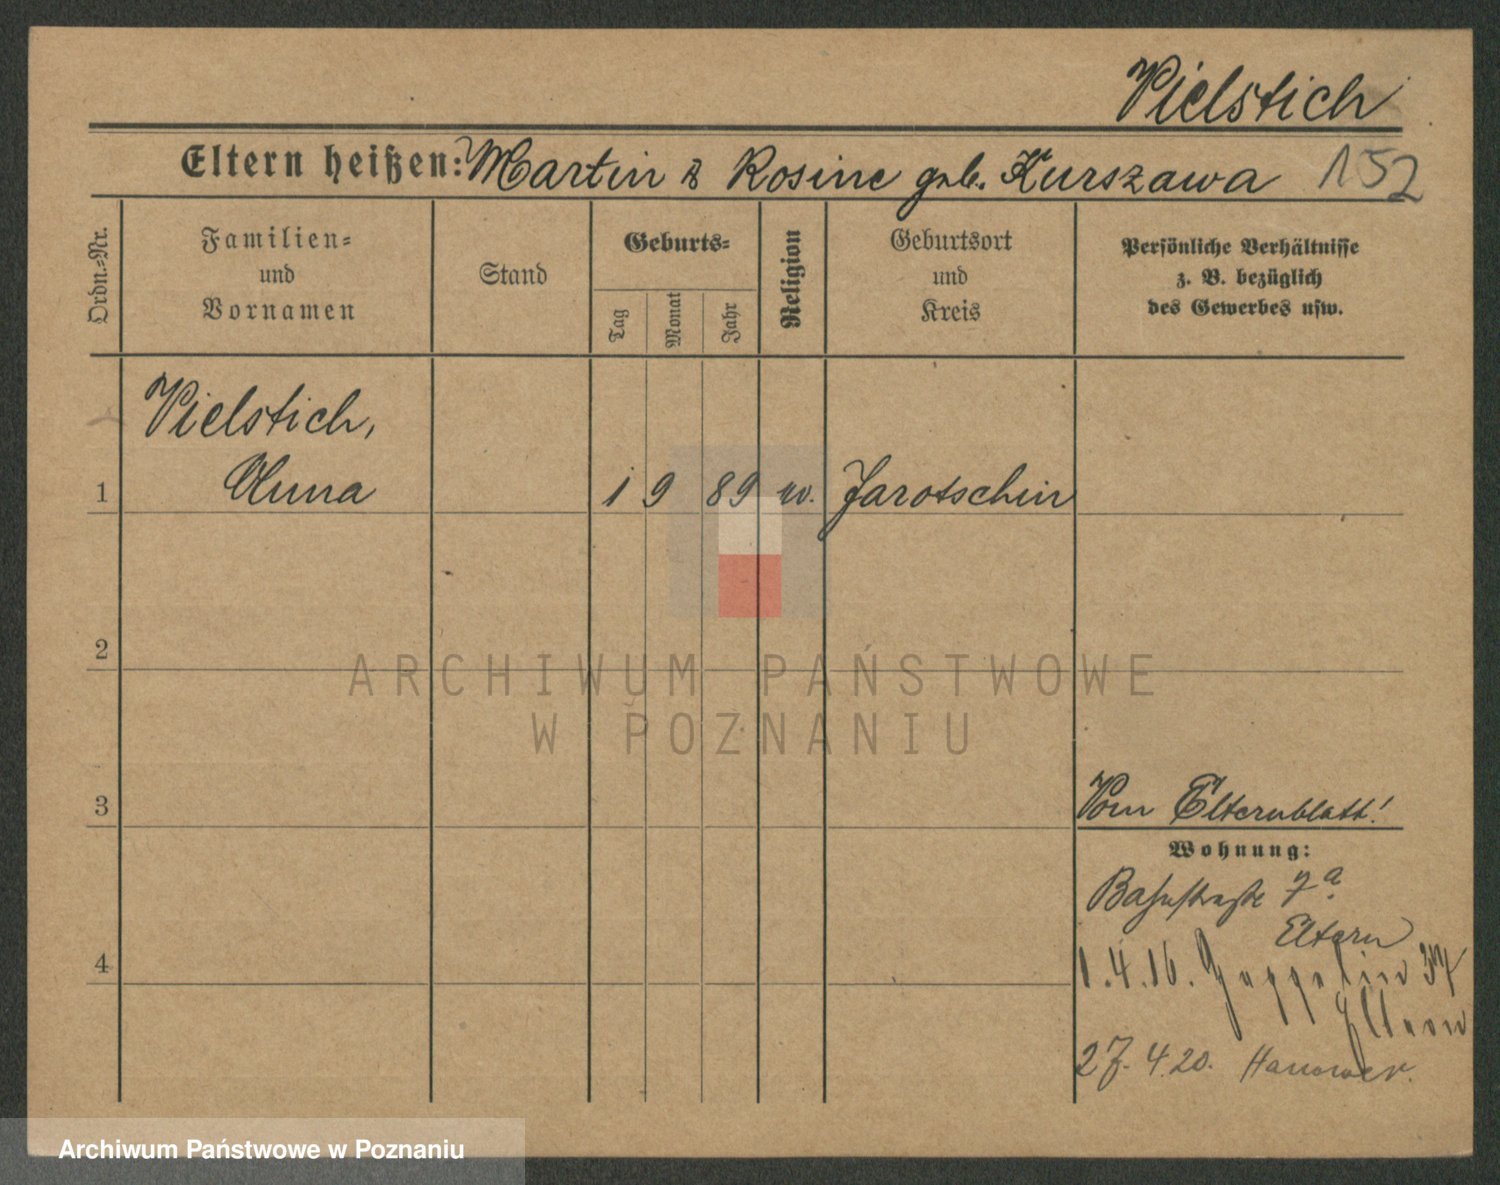 Vielstich
Eltern heißen: Martin & Rosine geb. Kurszawa 152
Ordn.-Nr.
Familien-
und
Vornamen
Stand
Geburts-
Tag
Monat
Jahr
Religion
Geburtsort
und
Kreis
Persönliche Verhältnisse
z. B. bezüglich
des Gewerbes usw.
Vielstich,
1 Anna 1 9 89 ev. Jarotschin
2
ARCHIWUM PAŃSTWOWE
W POZNANIU
3 Vom Elternblatt!
Wohnung:
Bahnstraße 7a
Eltern
4
1.4.16. Zeppelin 37
Eltern
27.4.20. Hannover.
Archiwum Państwowe w Poznaniu